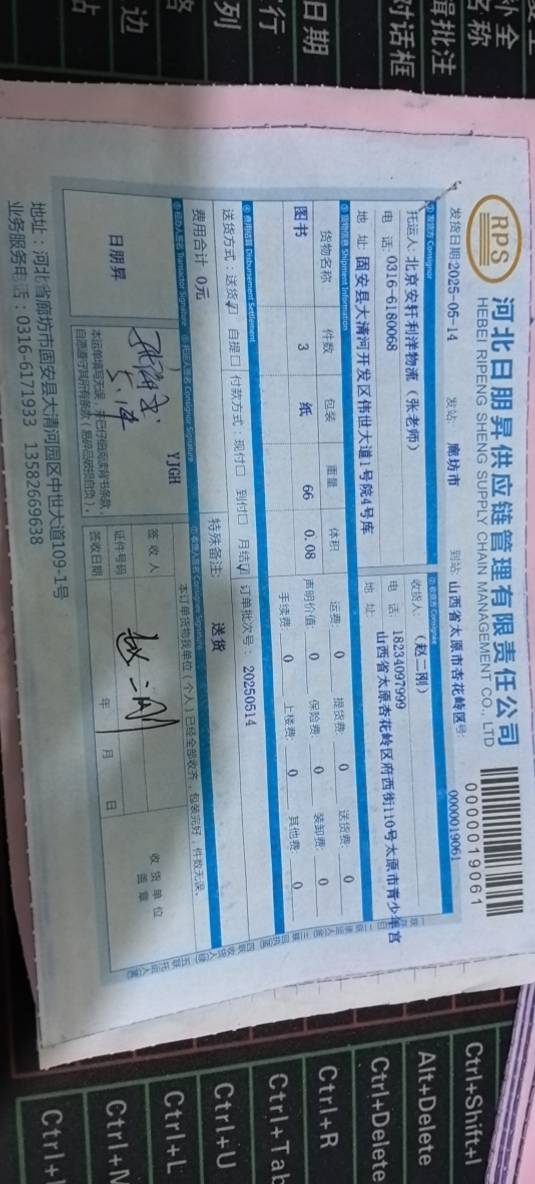 RPS
河北日朋昇供应链管理有限责任公司
HEBEI RIPENG SHENG SUPPLY CHAIN MANAGEMENT CO., LTD
0000019061
发货日期:2025-05-14 发站: 廊坊市 到站: 山西省太原市杏花岭区号: 0000019061
发货方 Consignor
托运人: 北京安轩利洋物流 (张老师)
电 话: 0316-6180068
地 址: 固安县大清河开发区伟世大道1号院4号库
收货人: (赵二刚)
电 话: 18234097999
地 址: 山西省太原杏花岭区府西街110号太原市青少年宫
货物信息 Shipment Information
货物名称 件数 包装 重量 体积
图书 3 纸 66 0.08
运费: 0 提货费: 0 送货费: 0
声明价值: 0 保险费: 0 装卸费: 0
手续费: 0 上楼费: 0 其他费: 0
费用结算 Disbursement Settlement
送货方式: 送货☑ 自提□ 付款方式: 现付□ 到付□ 月结☑ 订单批次号: 20250514
费用合计 0元 特殊备注: 送货
经办人签名 Transactor Signature
托运人签名 Consignor Signature
日朋昇
YJGH
5.14
本运单填写无误,并已仔细阅读背书条款,
自愿遵守其所有条款(易碎品破损自负)。
本订单货物我单位(个人)已经全部收齐,包装完好,件数无误。
签收人 赵二刚
证件号码
签收日期 年 月 日
收货单位
盖章
地址:河北省廊坊市固安县大清河园区中世大道109-1号
业务服务电话:0316-6171933 13582669638
补全
名称
辑批注
对话框
日期
行
列
边
Ctrl+Shift+I
Alt+Delete
Ctrl+Delete
Ctrl+R
Ctrl+Tab
Ctrl+U
Ctrl+L